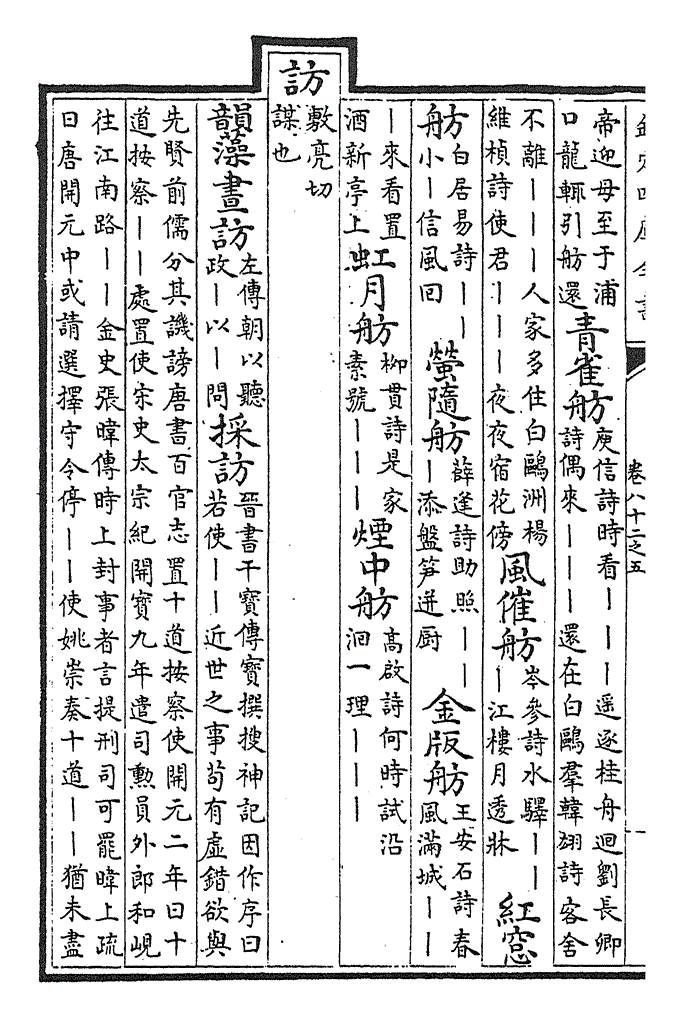 卷八十二之五
帝迎母至于浦
口龍輒引舫還
青雀舫
庾信詩時看｜｜｜遥逐桂舟迴劉長卿
詩偶來｜｜｜還在白鷗羣韓翃詩客舍
不離｜｜｜人家多住白鷗洲楊
維楨詩使君｜｜｜夜夜宿花傍
風催舫
岑參詩水驛｜｜
｜江樓月透牀
紅窓
舫
白居易詩｜｜
小｜信風回
螢隨舫
薛逢詩助照｜｜
｜添盤笋迸厨
金版舫
王安石詩春
風滿城｜｜
｜來看置
酒新亭上
虹月舫
柳貫詩是家
素號｜｜｜
煙中舫
高啟詩何時試沿
洄一理｜｜｜
訪
敷亮切
謀也
韻藻
晝訪
左傳朝以聽
政｜以｜問
採訪
晉書干寶傳寶撰搜神記因作序曰
若使｜｜近世之事苟有虛錯欲與
先賢前儒分其譏謗唐書百官志置十道按察使開元二年曰十
道按察｜｜處置使宋史太宗紀開寶九年遣司勲員外郎和峴
往江南路｜｜金史張暐傳時上封事者言提刑司可罷暐上疏
曰唐開元中或請選擇守令停｜｜使姚崇奏十道｜｜猶未盡